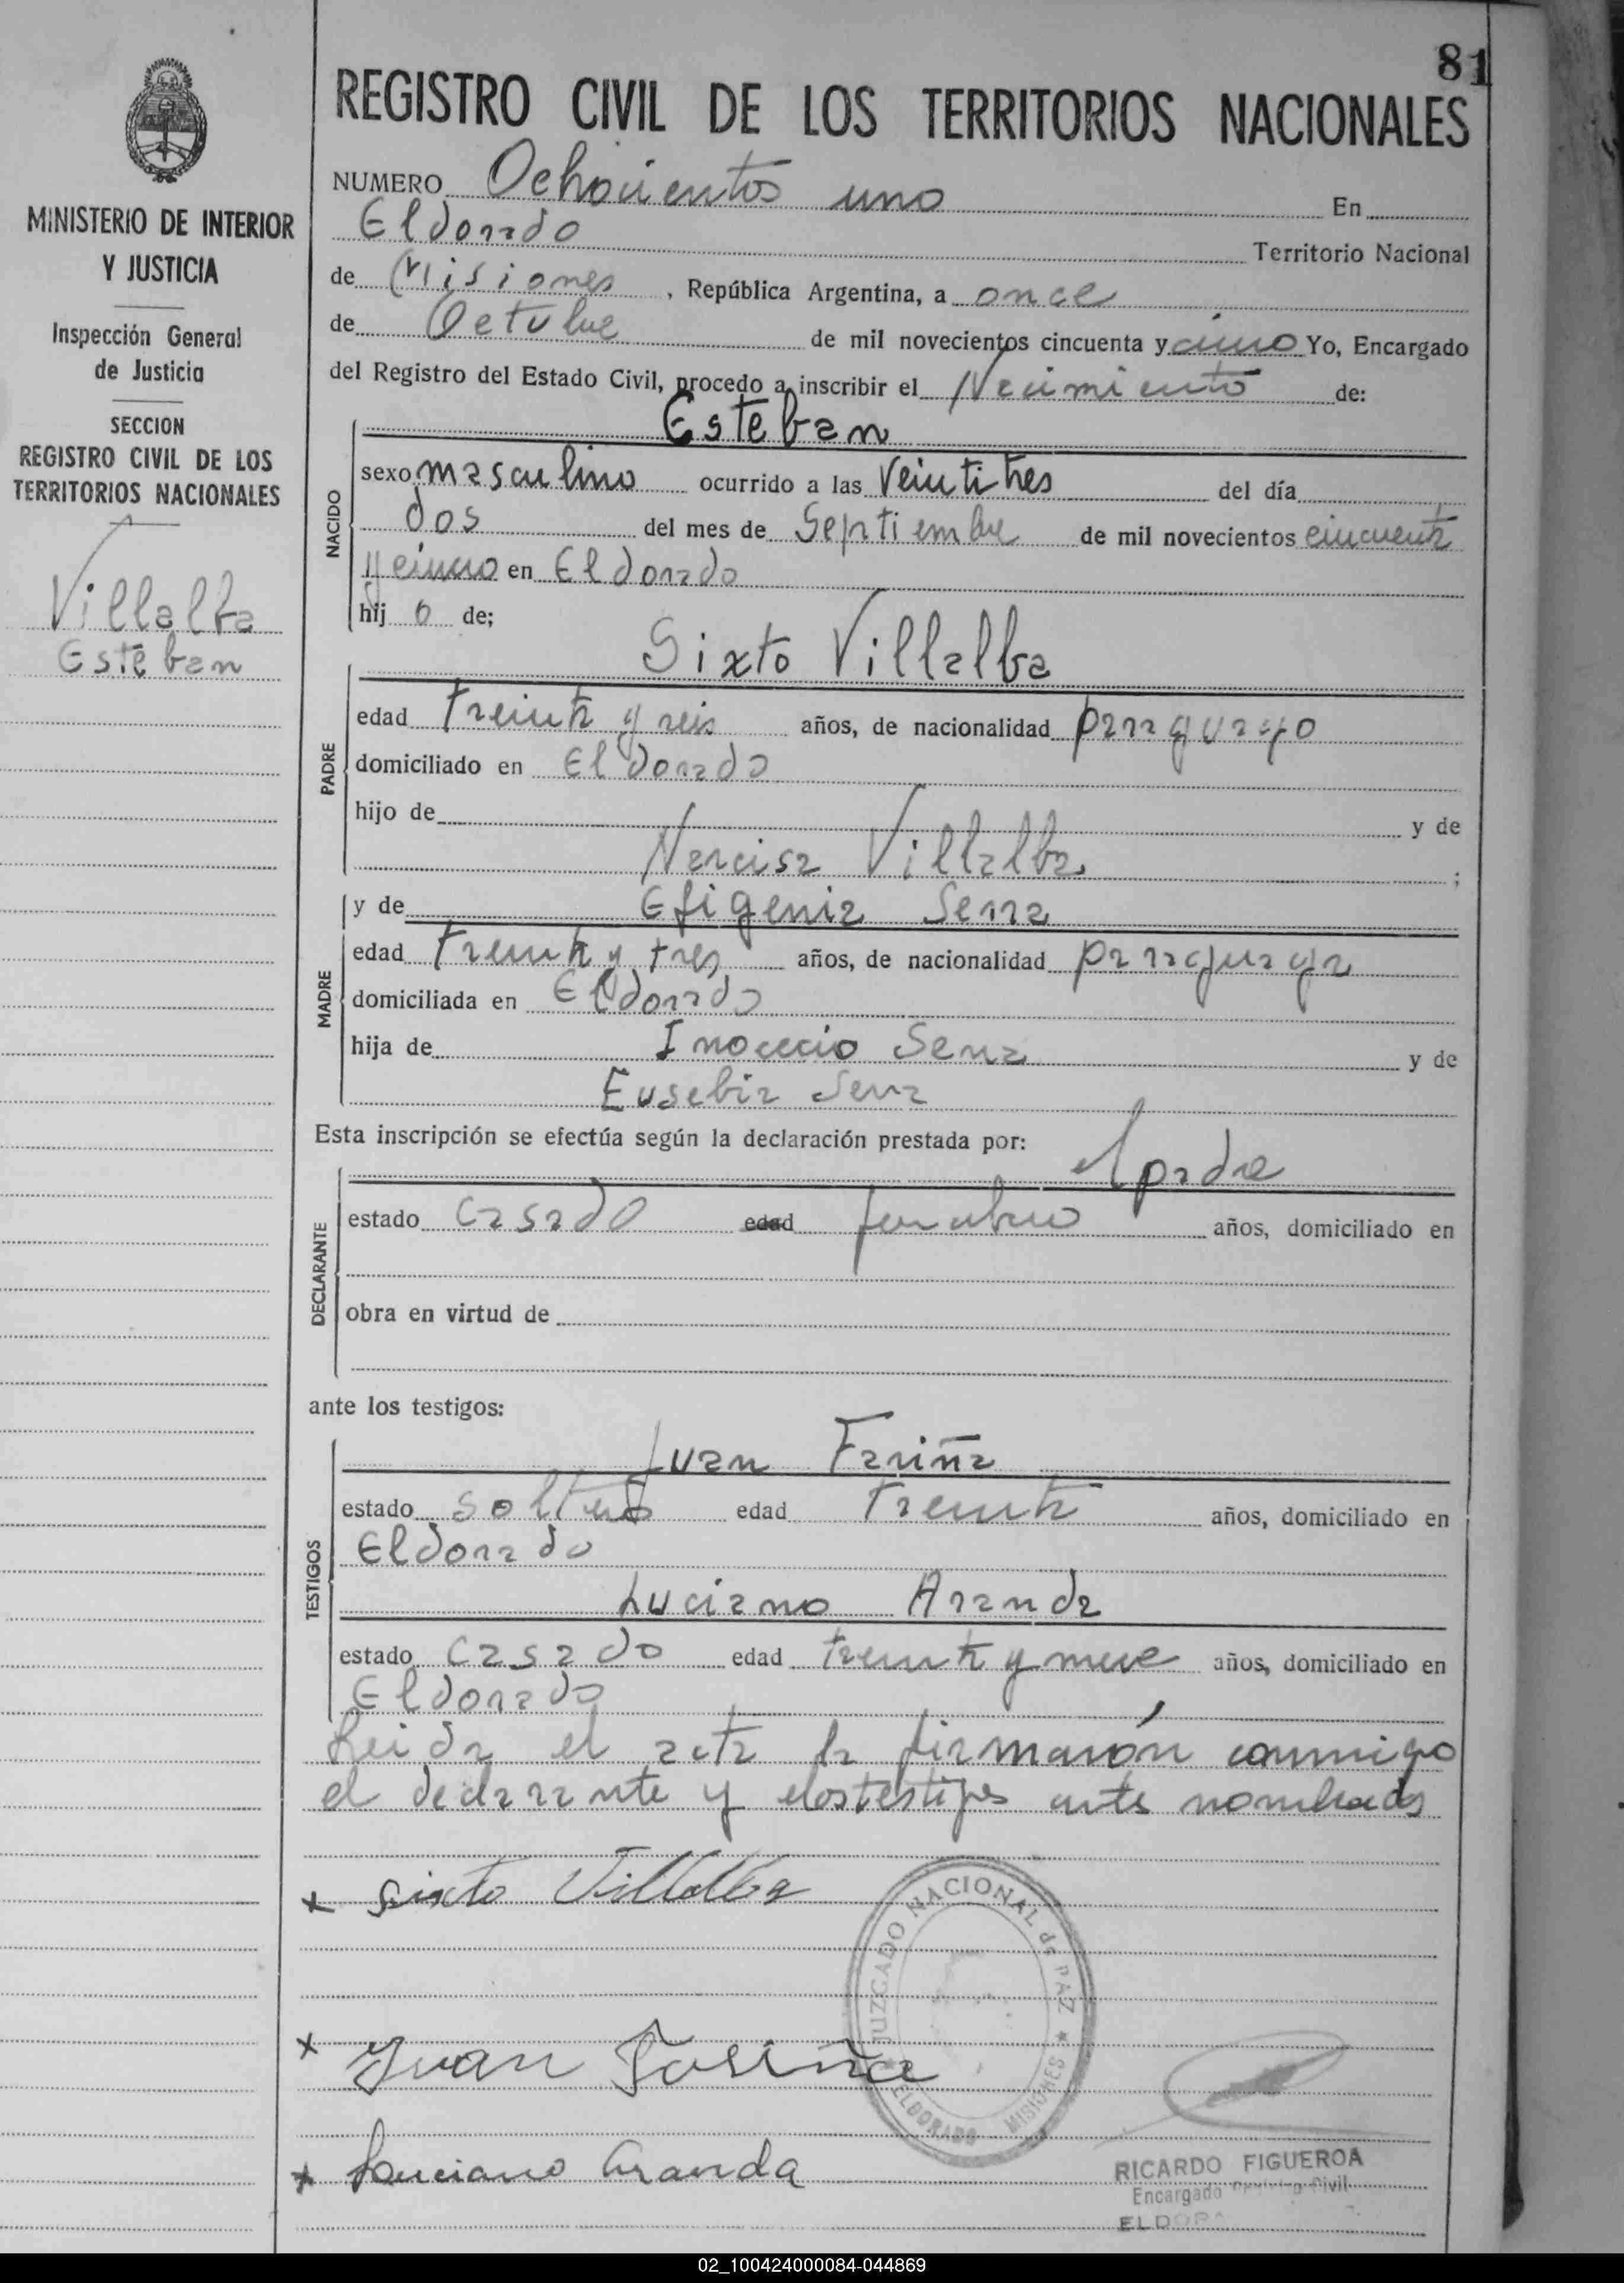 81
REGISTRO CIVIL DE LOS TERRITORIOS NACIONALES
MINISTERIO DE INTERIOR
Y JUSTICIA
Inspección General
de Justicia
SECCION
REGISTRO CIVIL DE LOS
TERRITORIOS NACIONALES
Villalba
Esteban
NUMERO Ochocientos uno En
Eldorado Territorio Nacional
de Misiones, República Argentina, a once
de Octubre de mil novecientos cincuenta y cinco Yo, Encargado
del Registro del Estado Civil, procedo a inscribir el Nacimiento de:
Esteban
NACIDO
sexo masculino ocurrido a las Veintitres del día
dos del mes de Septiembre de mil novecientos cincuenta
y cinco en Eldorado
hijo de;
Sixto Villalba
PADRE
edad Treinta y seis años, de nacionalidad paraguayo
domiciliado en Eldorado
hijo de y de
Narcisa Villalba ;
y de Efigenia Serra
MADRE
edad Treinta y tres años, de nacionalidad paraguaya
domiciliada en Eldorado
hija de Inocecio Serra y de
Eusebia Serra
Esta inscripción se efectúa según la declaración prestada por:
el padre
DECLARANTE
estado casado edad años, domiciliado en
obra en virtud de
ante los testigos:
Juan Fariña
TESTIGOS
estado soltero edad Treinta años, domiciliado en
Eldorado
Luciano Aranda
estado casado edad treinta y nueve años, domiciliado en
Eldorado
Leida el acta la firmarón conmigo
el declarante y los testigos ante nombrados
x Sixto Villalba
JUZGADO NACIONAL de PAZ ★ ELDORADO - MISIONES ★
x Juan Fariña
x Luciano Aranda
RICARDO FIGUEROA
Encargado Civil
02_100424000084-044869